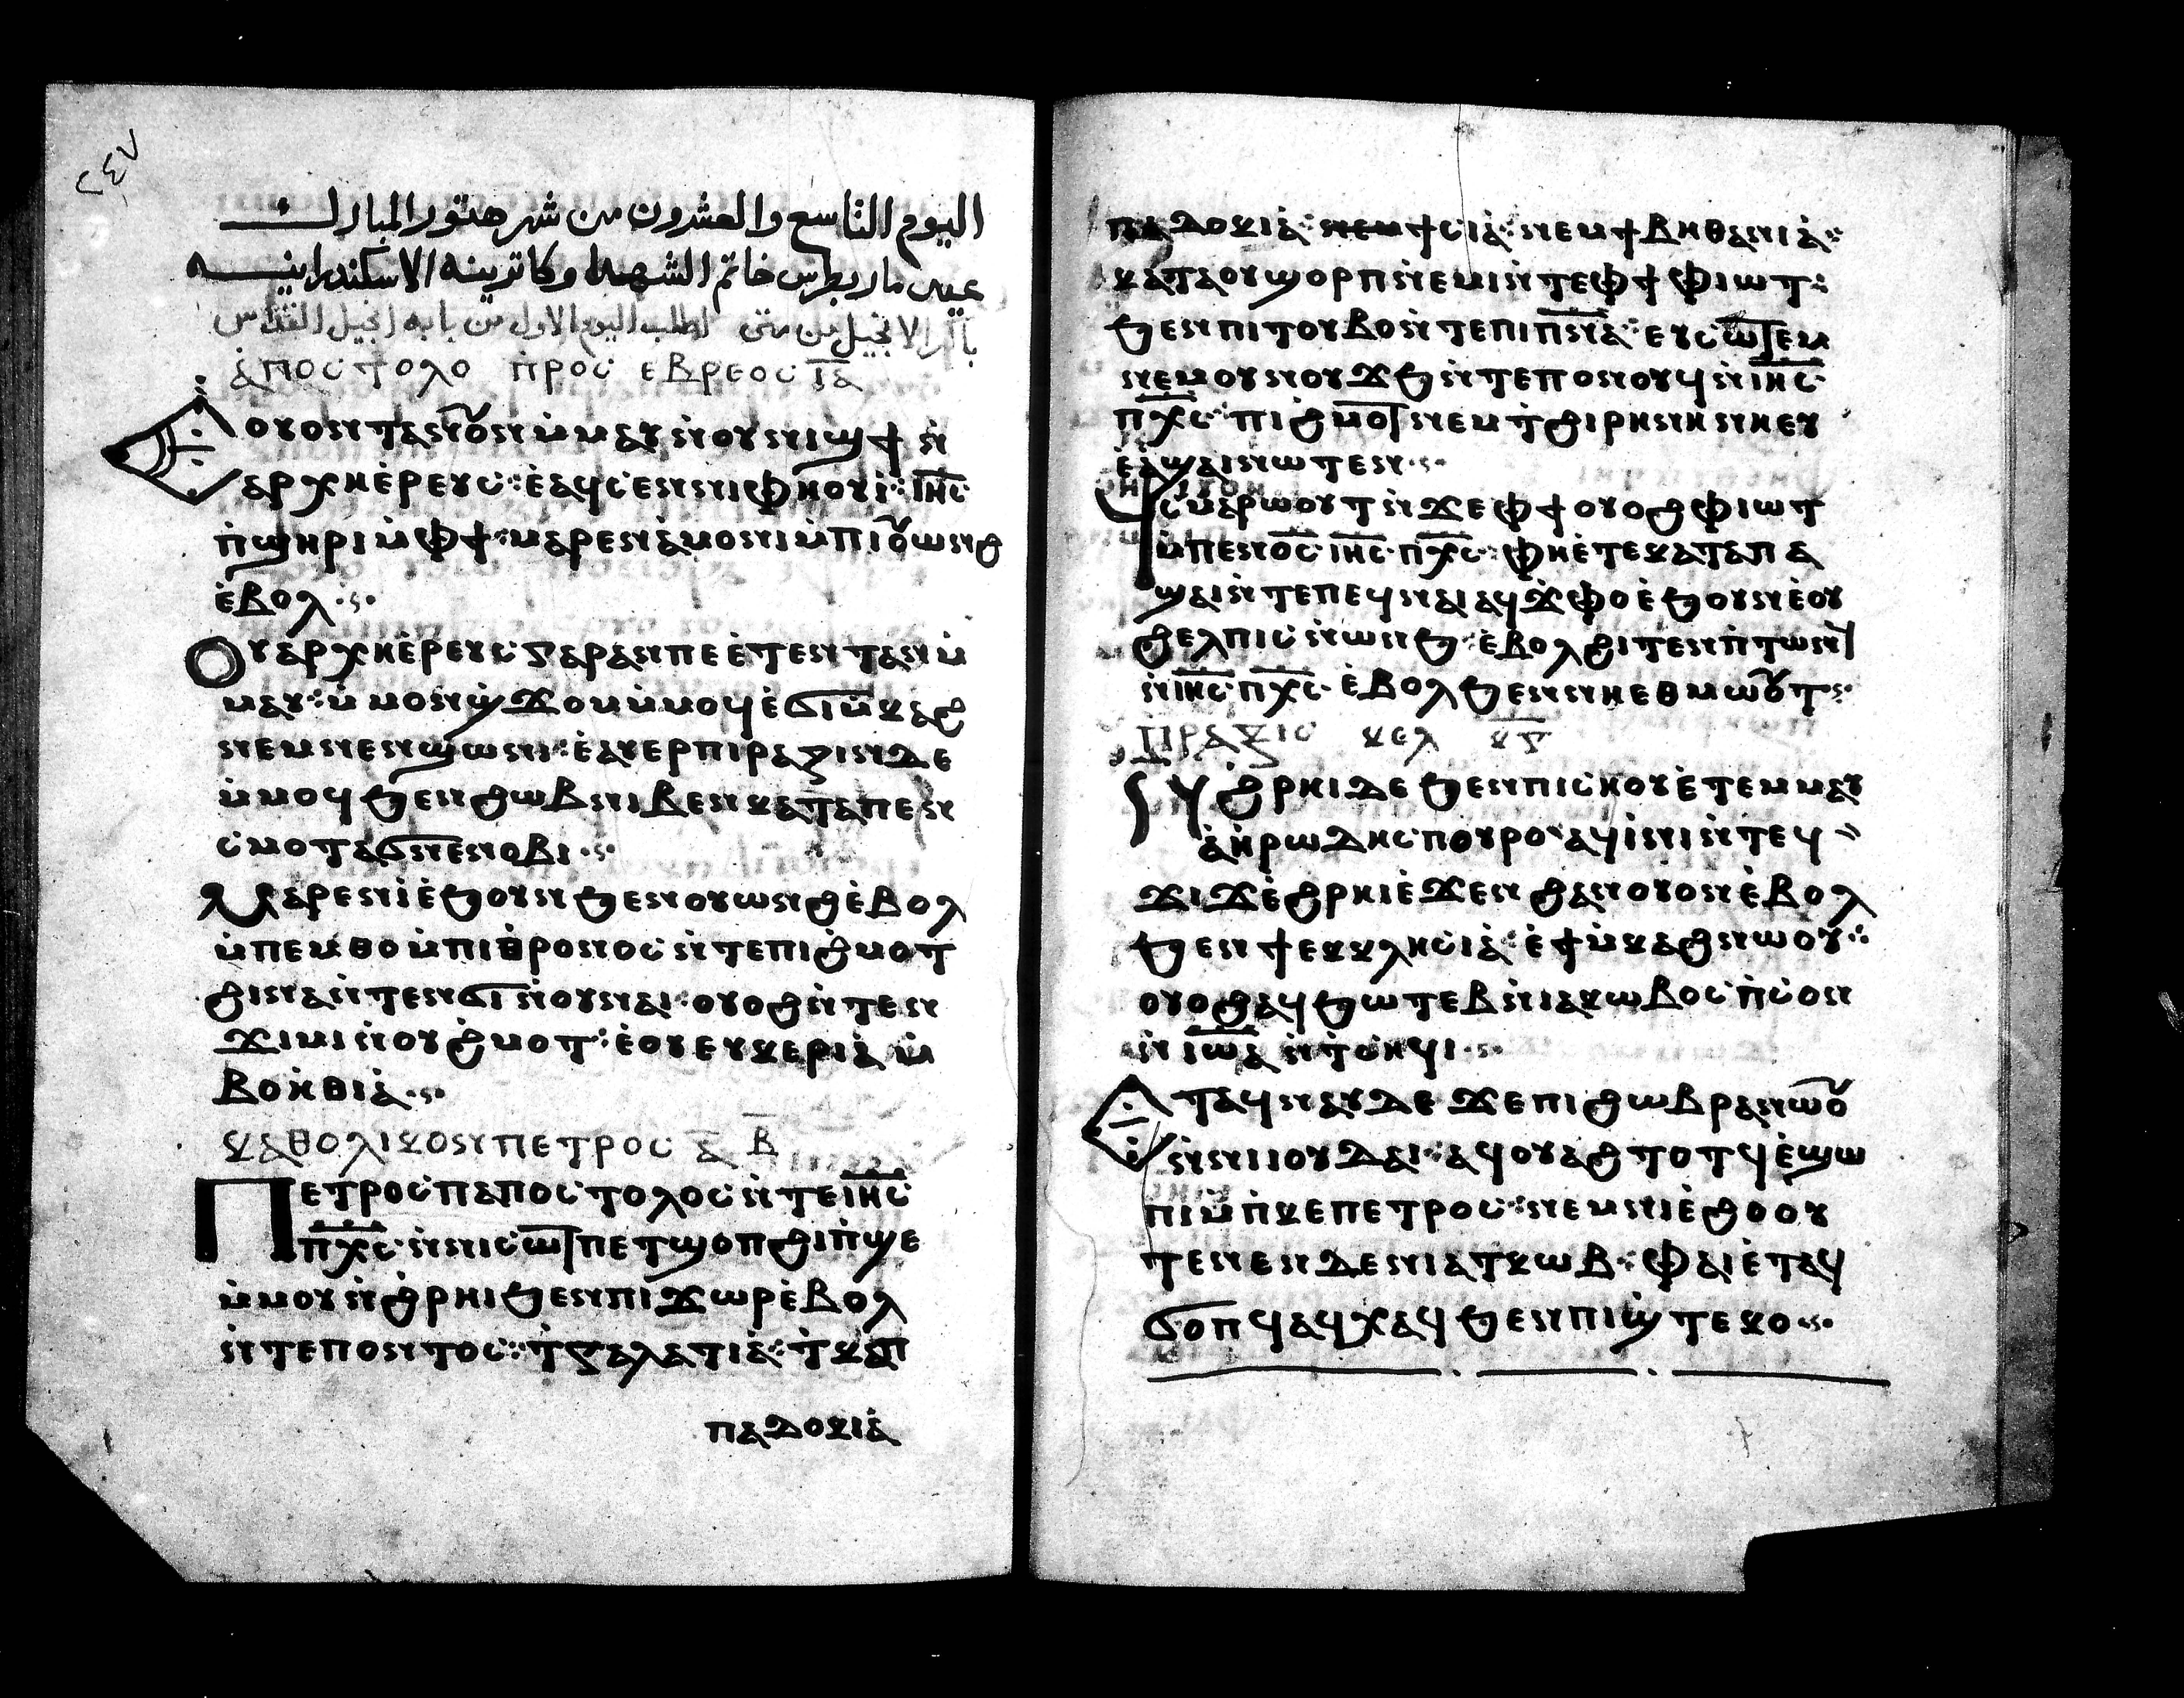 ٢٤٧
اليوم التاسع والعشرون من شهر هتور المبارك
عيد مار بطرس خاتم الشهدا وكاترينه الاسكندرانيه
باكر الانجيل من متى اطلب اليوم الاول من بابه انجيل القداس
ⲁ̀ⲡⲟⲥⲧⲟⲗⲟ ⲡ̀ⲣⲟⲥ ⲉⲃⲣⲉⲟⲥ ⲓ̅ⲁ̅
Ⲉⲟⲩⲟⲛⲧⲁⲛⲟⲩⲟⲛ ⲙ̀ⲙⲁⲩ ⲛ̀ⲟⲩⲛⲓϣϯ ⲛ̀
ⲁⲣⲭⲏⲉ̀ⲣⲉⲩⲥ⁘ ⲉ̀ⲁϥⲥⲉⲛⲛⲓⲫⲏⲟⲩⲓ̀⁘ ⲓ̅ⲏ̅ⲥ̅
ⲡ̀ϣⲏⲣⲓ ⲙ̀ⲫϯ⁘ ⲙⲁⲣⲉⲛⲁ̀ⲙⲟⲛⲓ ⲙ̀ⲡⲓⲟⲩⲱⲛϩ
ⲉ̀ⲃⲟⲗ
Ⲟⲩⲁⲣⲭⲏⲉ̀ⲣⲉⲩⲥ ⲅⲁⲣ ⲁⲛⲡⲉ ⲉ̀ⲧⲉⲛⲧⲁⲛ ⲙ̀
ⲙⲁⲩ⁘ ⲙ̀ⲙⲟⲛϣ̀ϫⲟⲙ ⲙ̀ⲙⲟϥ ⲉ̀ϭⲓⲙ̀ⲕⲁϩ
ⲛⲉⲙ ⲛⲉⲛϣⲱⲛⲓ⁘ ⲉ̀ⲁⲩⲉⲣⲡⲓⲣⲁⲍⲓⲛ ⲇⲉ
ⲙ̀ⲙⲟϥ ϧⲉⲛ ϩⲱⲃ ⲛⲓⲃⲉⲛ ⲕⲁⲧⲁ ⲡⲉⲛ
ⲥⲙⲟⲧ ⲁϭⲛⲉ ⲛⲟⲃⲓ
Ⲙⲁⲣⲉⲛⲓ̀ ⲉ̀ϧⲟⲩⲛ ϧⲉⲛ ⲟⲩⲱⲛϩ ⲉ̀ⲃⲟⲗ
ⲙ̀ⲡⲉⲙⲑⲟ ⲙ̀ⲡⲓⲑⲣⲟⲛⲟⲥ ⲛ̀ⲧⲉ ⲡⲓϩ̀ⲙⲟⲧ
ϩⲓⲛⲁ ⲛ̀ⲧⲉⲛϭⲓ ⲛ̀ⲟⲩⲛⲁⲓ⁘ ⲟⲩⲟϩ ⲛ̀ⲧⲉⲛ
ϫⲓⲙⲓ ⲛ̀ⲟⲩϩ̀ⲙⲟⲧ⁘ ⲉ̀ⲟⲩⲉⲩⲕⲉⲣⲓⲁ̀ ⲙ̀
ⲃⲟⲏ̀ⲑⲓⲁ̀
ⲕⲁⲑⲟⲗⲓⲕⲟⲛ ⲡⲉⲧⲣⲟⲥ ⲁ̅ ⲃ̅
Ⲡⲉⲧⲣⲟⲥ ⲡⲁⲡⲟⲥⲧⲟⲗⲟⲥ ⲛ̀ⲧⲉ ⲓ̅ⲏ̅ⲥ̅
ⲡ̅ⲭ̅ⲥ̅ ⲛ̀ⲛⲓⲥⲱⲧⲡ ⲉⲧϣⲟⲡ ϩⲓ ⲡ̀ϣⲉ
ⲙ̀ⲙⲟⲩ ⲛ̀ϩ̀ⲣⲏⲓ ϧⲉⲛ ⲡⲓϫⲱⲣ ⲉ̀ⲃⲟⲗ
ⲛ̀ⲧⲉ ⲡⲟⲛⲧⲟⲥ⁘ ⲧ̀ⲅⲁⲗⲁⲧⲓⲁ̀⁘ ⲧ̀ⲕⲁⲡ
ⲡⲁⲇⲟⲕⲓⲁ̀
ⲡⲁⲇⲟⲕⲓⲁ̀⁘ ⲛⲉⲙ ϯⲥⲓⲁ̀⁘ ⲛⲉⲙ ϯⲃⲏⲑⲁⲛⲓⲁ̀⁘
ⲕⲁⲧⲁ ⲟⲩϣⲟⲣⲡ ⲛ̀ⲉⲙⲓ ⲛ̀ⲧⲉ ⲫϯ ⲫⲓⲱⲧ⁘
ϧⲉⲛ ⲡⲓⲧⲟⲩⲃⲟ ⲛ̀ⲧⲉ ⲡⲓⲡ̅ⲛ̅ⲁ̅⁘ ⲉⲩⲥⲱⲧⲉⲙ
ⲛⲉⲙ ⲟⲩⲛⲟⲩϫϧ ⲛ̀ⲧⲉ ⲡ̀ⲥⲛⲟϥ ⲛ̀ⲓ̅ⲏ̅ⲥ̅
ⲡ̅ⲭ̅ⲥ̅⁘ ⲡⲓϩ̀ⲙⲟⲧ ⲛⲉⲙ ⲧ̀ϩⲓⲣⲏⲛⲏ ⲛ̀ⲛⲉⲩ
ⲉ̀ⲁ̀ϣⲁⲓ ⲛⲱⲧⲉⲛ
Ϥⲥⲙⲁⲣⲱⲟⲩⲧ ⲛ̀ϫⲉ ⲫϯ ⲟⲩⲟϩ ⲫⲓⲱⲧ
ⲙ̀ⲡⲉⲛⲟ̅ⲥ̅ ⲓ̅ⲏ̅ⲥ̅ ⲡ̅ⲭ̅ⲥ̅⁘ ⲫⲏⲉ̀ⲧⲉ ⲕⲁⲧⲁ ⲡ ⲁ
ϣⲁⲓ ⲛ̀ⲧⲉ ⲡⲉϥⲛⲁⲓ ⲁϥϫⲫⲟ ⲉ̀ϧⲟⲩⲛ ⲉ̀ⲟⲩ
ϩⲉⲗⲡⲓⲥ ⲛ̀ⲱⲛϧ⁘ ⲉ̀ⲃⲟⲗ ϩⲓⲧⲉⲛ ⲡ̀ⲧⲱⲛϥ
ⲛ̀ⲓ̅ⲏ̅ⲥ̅ ⲡ̅ⲭ̅ⲥ̅ ⲉ̀ⲃⲟⲗ ϧⲉⲛ ⲛⲏⲉⲑⲙⲱⲟⲩⲧ
ⲡⲣⲁⲝⲓⲥ ⲕⲉⲗ ⲕ̅ⲍ̅
Ⲛϩ̀ⲣⲏⲓ ⲇⲉ ϧⲉⲛ ⲡⲓⲥⲏⲟⲩ ⲉ̀ⲧⲉⲙⲙⲁⲩ
ⲁ̀ ⲏ̀ⲣⲱⲇⲏⲥ ⲡⲟⲩⲣⲟ ⲁϥⲓ̀ⲛⲓ ⲛ̀ⲧⲉϥ
ϫⲓϫ ⲉ̀ϩⲣⲏⲓ ⲉ̀ϫⲉⲛ ϩⲁⲛⲟⲩⲟⲛ ⲉ̀ⲃⲟⲗ
ϧⲉⲛ ϯⲉⲕⲕⲗⲏⲥⲓⲁ̀⁘ ⲉ̀ϯⲙ̀ⲕⲁϩ ⲛⲱⲟⲩ⁘
ⲟⲩⲟϩ ⲁϥϧⲱⲧⲉⲃ ⲛ̀ⲓⲁⲕⲱⲃⲟⲥ ⲡ̀ⲥⲟⲛ
ⲛ̀ⲓⲱⲁ ⲛ̀ⲧ̀ⲥⲏϥⲓ
Ⲉⲧⲁϥⲛⲁⲩ ⲇⲉ ϫⲉ ⲡⲓϩⲱⲃ ⲣⲁⲛⲱⲟⲩ
ⲛ̀ⲛⲓⲓⲟⲩⲇⲁⲓ⁘ ⲁϥⲟⲩⲁϩⲧⲟⲧϥ ⲉ̀ϣⲱ
ⲡⲓ ⲙ̀ⲡ̀ⲕⲉⲡⲉⲧⲣⲟⲥ⁘ ⲛⲉⲙ ⲛⲓⲉ̀ϩⲟⲟⲩ
ⲧⲉ ⲛⲉⲛ ⲇⲉ ⲛⲓⲁⲧⲕⲱⲃ⁘ ⲫⲁⲓ ⲉ̀ⲧⲁϥ
ϭⲟⲡϥ ⲁϥⲭⲁϥ ϧⲉⲛ ⲡⲓϣ̀ⲧⲉⲕⲟ